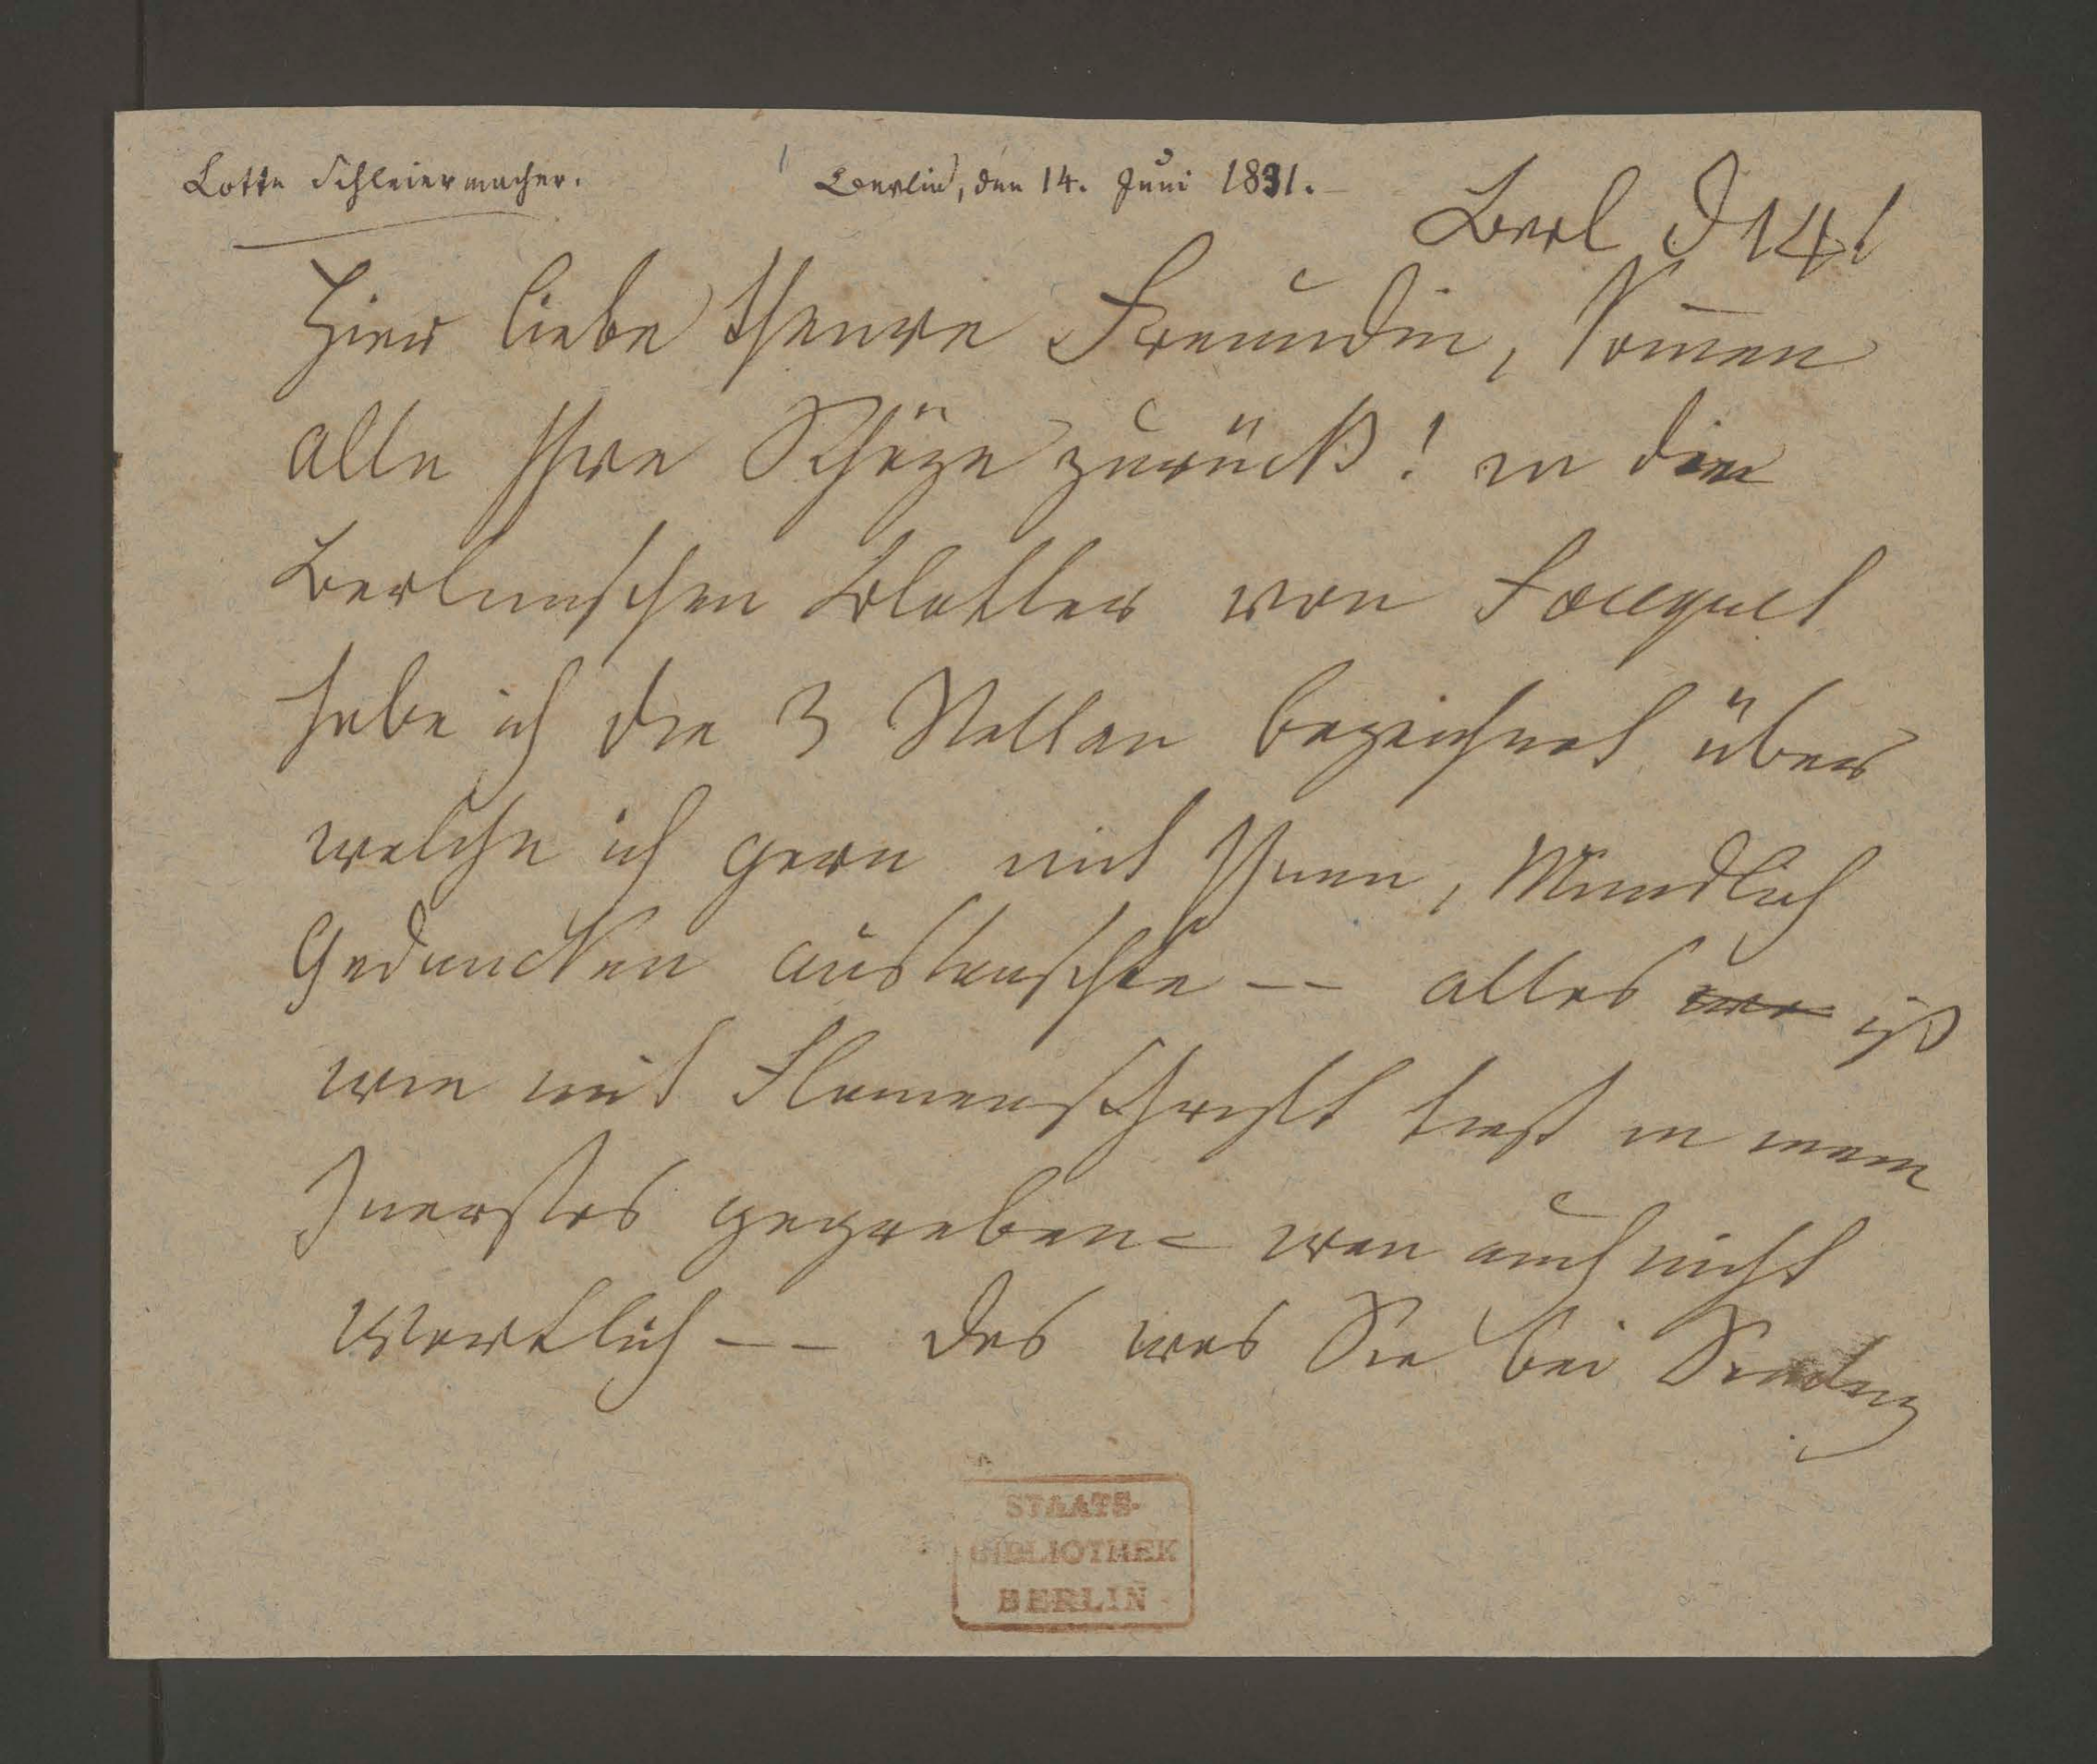 Lotte Schleiermacher.
Berlin, den 14. Juni 1831.
Berl d 14t
Hier liebe theure Freundin, komen
alle Ihre Schäze zurück! in den
Berlinschen Blätter von Fouquet
habe ich die 3 Stellen bezeichnet über
welche ich gern mit Ihnen, Mündlich
Gedancken austauschte -- alles ist
wie mit Flamenschrift tief in mein
Inerstes gegraben - wen auch nicht
Wörtlich -- das was Sie bei
STAATS-
BIBLIOTHEK
BERLIN